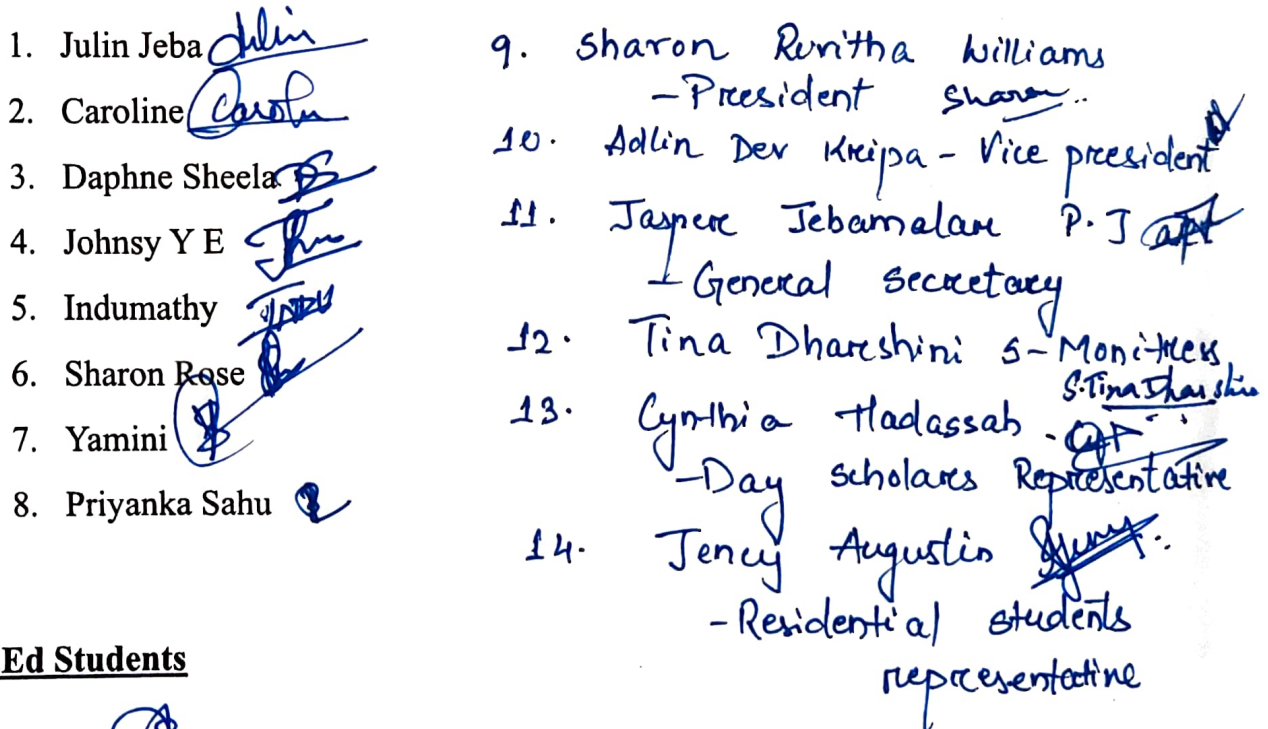 1. Julin Jeba Julin
2. Caroline
3. Daphne Sheela
4. Johnsy Y E
5. Indumathy INDU
6. Sharon Rose
7. Yamini
8. Priyanka Sahu
Ed Students
9. Sharon Ruvitha Williams
- President Sharon
10. Adlin Dev Kripa - Vice president
11. Jasper Jebamalar P. J
- General Secretary
12. Tina Dharshini S - Monitress
S. Tina Dharshini
13. Cynthia Hadassah
- Day scholars Representative
14. Jency Augustin
- Residential students
representative